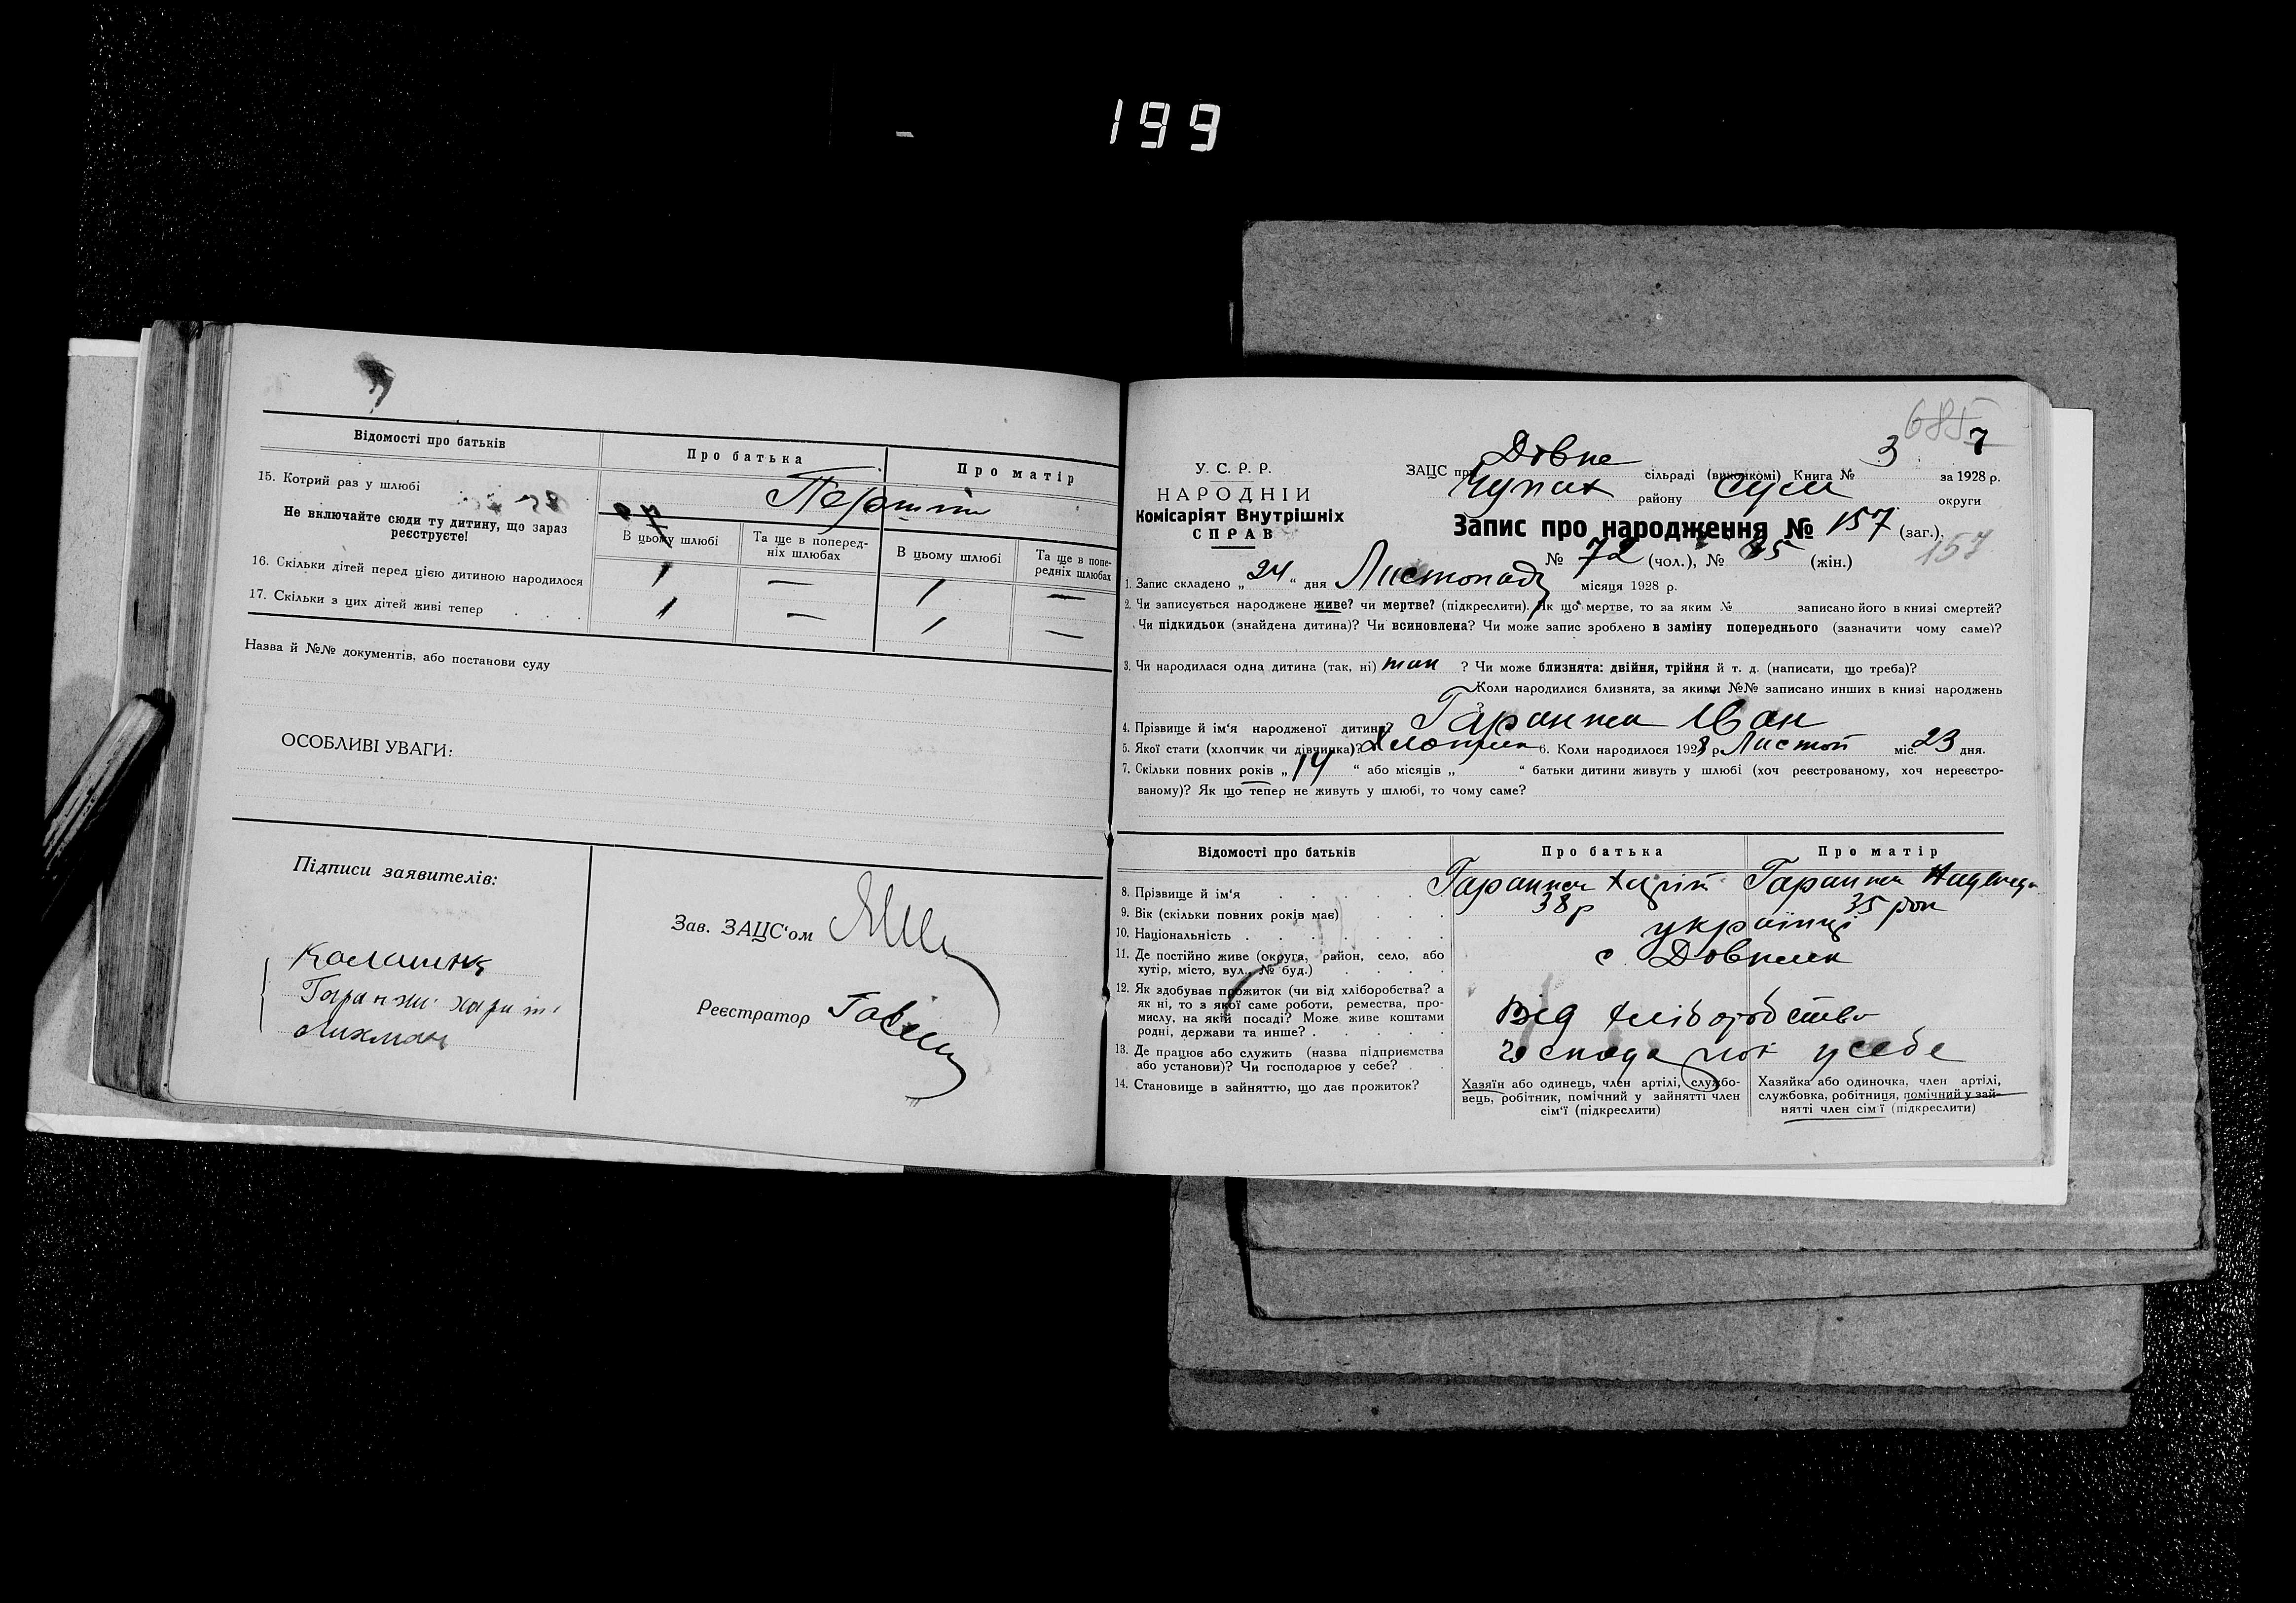 199
Відомості про батьків
Про батька
Про матір
15. Котрий раз у шлюбі
Не включайте сюди ту дитину, що зараз
реєструєте!
В цьому шлюбі
Та ще в поперед-
ніх шлюбах
В цьому шлюбі
Та ще в попе-
редніх шлюбах
16. Скільки дітей перед цією дитиною народилося
1 — 1 —
17. Скільки з цих дітей живі тепер
1 — 1 —
Назва й №№ документів, або постанови суду
ОСОБЛИВІ УВАГИ:
Підписи заявителів:
Зав. ЗАЦС‘ом
Реєстратор
685
7
У. С. Р. Р.
НАРОДНІЙ
Комісаріят Внутрішніх
СПРАВ
ЗАЦС при Довже сільраді (виконкомі) Книга № 3 за 1928 р.
Чупах району Сум округи
Запис про народження № 157 (заг.),
157
№ 72 (чол.), № 85 (жін.)
1. Запис складено „24“ дня Листопаду місяця 1928 р.
2. Чи записується народжене живе? чи мертве? (підкреслити). Як що мертве, то за яким № записано його в книзі смертей?
Чи підкидьок (знайдена дитина)? Чи всиновлена? Чи може запис зроблено в заміну попереднього (зазначити чому саме)?
3. Чи народилася одна дитина (так, ні) так ? Чи може близнята: двійня, трійня й т. д. (написати, що треба)?
Коли народилися близнята, за якими №№ записано инших в книзі народжень
4. Прізвище й ім‘я народженої дитини? Гаранжа Іван
5. Якої стати (хлопчик чи дівчинка)? Хлопчик 6. Коли народилося 1928 р. Листоп міс. 23 дня.
7. Скільки повних років „14“ або місяців „ “ батьки дитини живуть у шлюбі (хоч реєстрованому, хоч нереєстро-
ваному)? Як що тепер не живуть у шлюбі, то чому саме?
Відомості про батьків
Про батька
Про матір
8. Прізвище й ім‘я
Гаранжа Харіт
Гаранжа
9. Вік (скільки повних років має)
38 р
35 рок
10. Національність
українці
11. Де постійно живе (округа, район, село, або
хутір, місто, вул., № буд.)
с.
12. Як здобуває прожиток (чи від хліборобства? а
як ні, то з якої саме роботи, ремества, про-
мислу, на якій посаді? Може живе коштами
родні, держави та инше?
Від хліборобства
13. Де працює або служить (назва підприємства
або установи)? Чи господарює у себе?
у себе
14. Становище в зайняттю, що дає прожиток?
Хазяїн або одинець, член артілі, службо-
вець, робітник, помічний у зайнятті член
сім‘ї (підкреслити)
Хазяйка або одиночка, член артілі,
службовка, робітниця, помічний у зай-
нятті член сім‘ї (підкреслити)